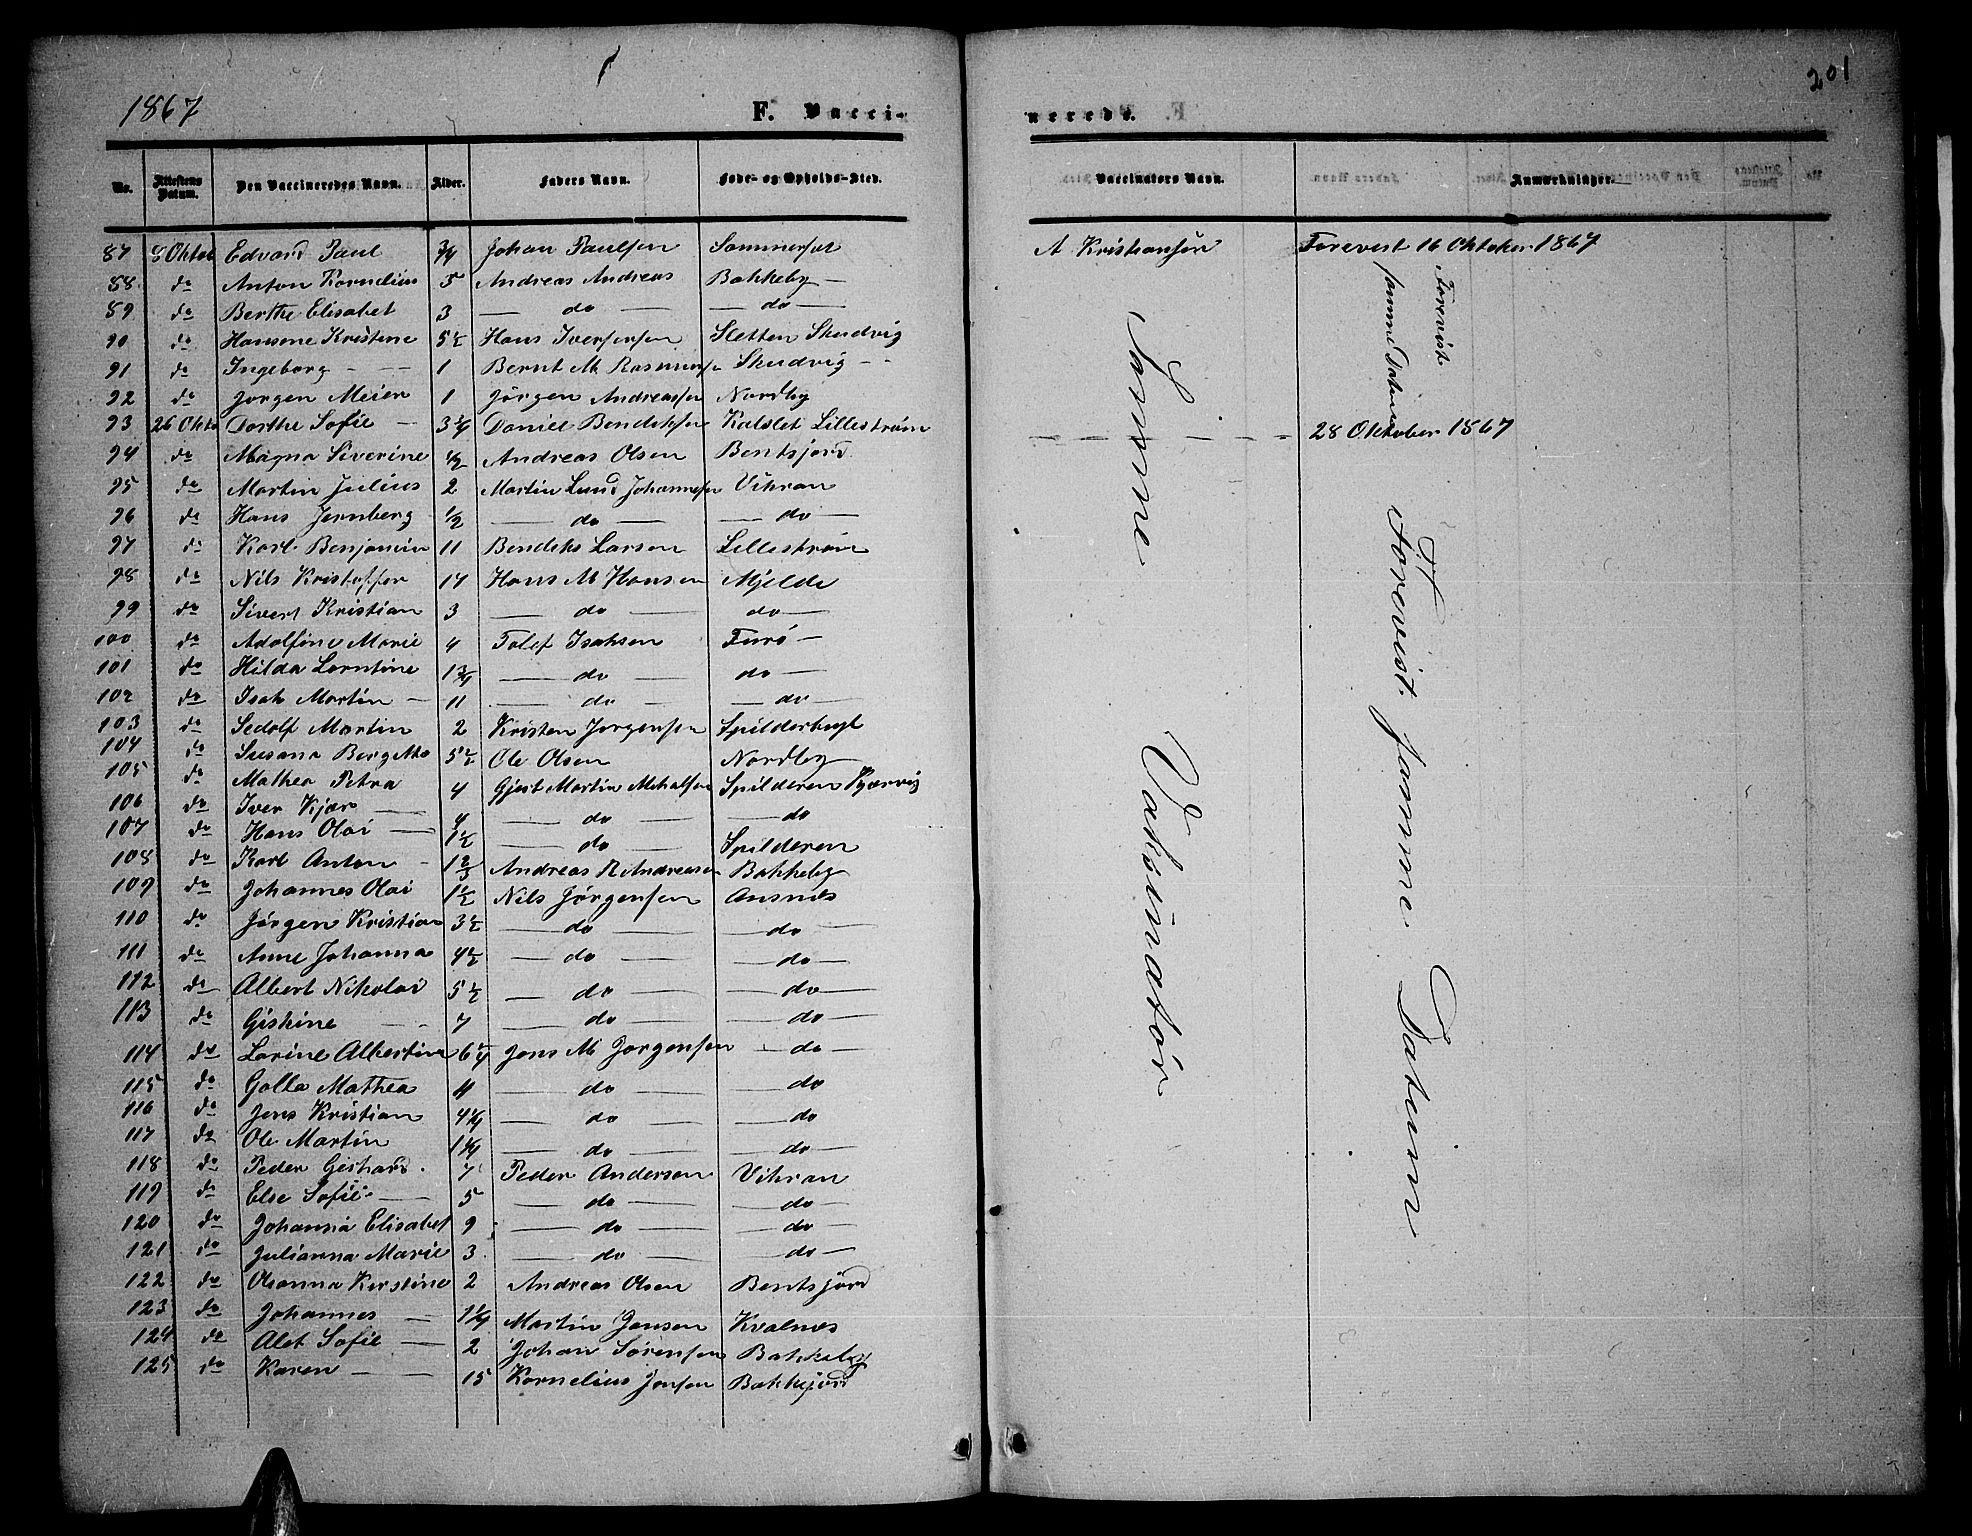 1867
F. Vacci-
nerede.
201
No. Attestens Datum. Den Vaccineredes Navn. Alder. Faders Navn. Føde- og Opholds-Sted. Vaccinators Navn. Anmærkninger.
87 8 Oktob Edvard Paul 3/4 Johan Paulsen Sommerset A Kristiansen Forevist 16 Oktober 1867
88 do Anton Kornelius 5 Andreas Andreas Bakkeby —
89 do Berthe Elisabet 3 — do — — do —
90 do Hansene Kristine 5 1/2 Hans Iversen Sletten Skudvig
91 do Ingeborg - - - 1 Bernt M Rasmuss Skudvig - -
92 do Jørgen Meier 1 Jørgen Andreassen Nordby
93 26 Okto Dorthe Sofie — 3 3/4 Daniel Bendiksen Kalslet Lillestrøm 28 Oktober 1867
94 do Magna Siverine 1/2 Andreas Olsen Bentsjord
95 do Martin Julius 2 Martin Lund Johannesen Vikran
96 do Hans Jernberg 1/2 — do — — do —
97 do Karl Benjamin 11 Bendiks Larsen Lillestrøm
98 do Nils Kristoffer 14 Hans M Hansen Mjelde
99 do Sivert Kristian 3 — do — do —
100 do Adolfine Marie 4 Tolef Isaksen Furø —
101 do Hilda Lorntine 1 3/4 — do — do —
102 do Isak Martin — 11 — do — — do —
103 do Sedolf Martin 2 Kristen Jørgensen Spilderbugt
104 do Susana Bergitte 5 1/2 Ole Olsen Nordby
105 do Mathea Petra 4 Gjert Martin Mikalsen Spilderen Kjærvig
106 do Iver Kjær — 4 — do — — do
107 do Hans Olai — 1 1/2 — do — Spilderen
108 do Karl Anton - 1 2/3 Andreas R Andreasen Bakkeby
109 do Johannes Olai 1 1/2 Nils Jørgensen Ansnes
110 do Jørgen Kristian 3 1/2 — do — — do —
111 do Anne Johanna 4 1/2 — do — — do —
112 do Albert Nikolai 5 1/2 — do — — do —
113 do Giskine - - 7 — do — — do —
114 do Lorine Albertine 6 1/4 Jens M Jørgensen — do —
115 do Golla Mathea 11 — do — — do
116 do Jens Kristian 4 1/4 — do — — do
117 do Ole Martin 1 1/4 — do — — do —
118 do Peder Gerhard. 7 Peder Andersen Vikran
119 do Else Sofie — 5 — do — — do
120 do Johanna Elisabet 9 — do — — do —
121 do Julianna Marie 3 — do — — do —
122 do Oleanna Kirstine 2 Andreas Olsen Bentsjord
123 do Johannes — 1 1/4 Martin Jansen Kvalnes
124 do Alet Sofie — 2 Johan Sørensen Bakkeby
125 do Karen — — 15 Kornelius Jensen Bakkejord
Samme Vaksinatør
Forevist
samme Datum
Forevist Samme Datum